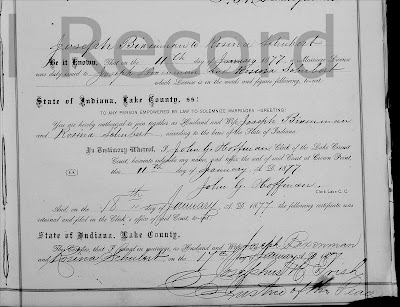 Record
Joseph Brennman & Rosina Schubert
Be it Known, That on the 11th day of January 1877 a Marriage License
was duly issued to Joseph Brennman and Rosina Schubert
which License is in the words and figures following, to-wit:
State of Indiana, Lake County, ss:
TO ANY PERSON EMPOWERED BY LAW TO SOLEMNIZE MARRIAGES—GREETING:
You are hereby authorized to join together as Husband and Wife Joseph Brennman
and Rosina Schubert, according to the laws of the State of Indiana.
In Testimony Whereof, I, John G. Hoffman Clerk of the Lake Circuit
Court, hereunto subscribe my name, and affix the seal of said Court at Crown Point,
this 11th day of January A. D. 1877
John G. Hoffman
Clerk L. C. C.
And, on the 18th day of January A. D. 1877, the following certificate was
returned and filed in the Clerk's office of said Court, to-wit:
State of Indiana, Lake County.
This Certifies, that I joined in marriage, as Husband and Wife, Joseph Brennman
and Rosina Schubert on the 17th of January 1877
Justice of the Peace